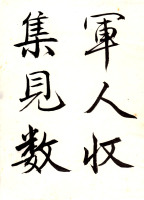 軍人収
集見数